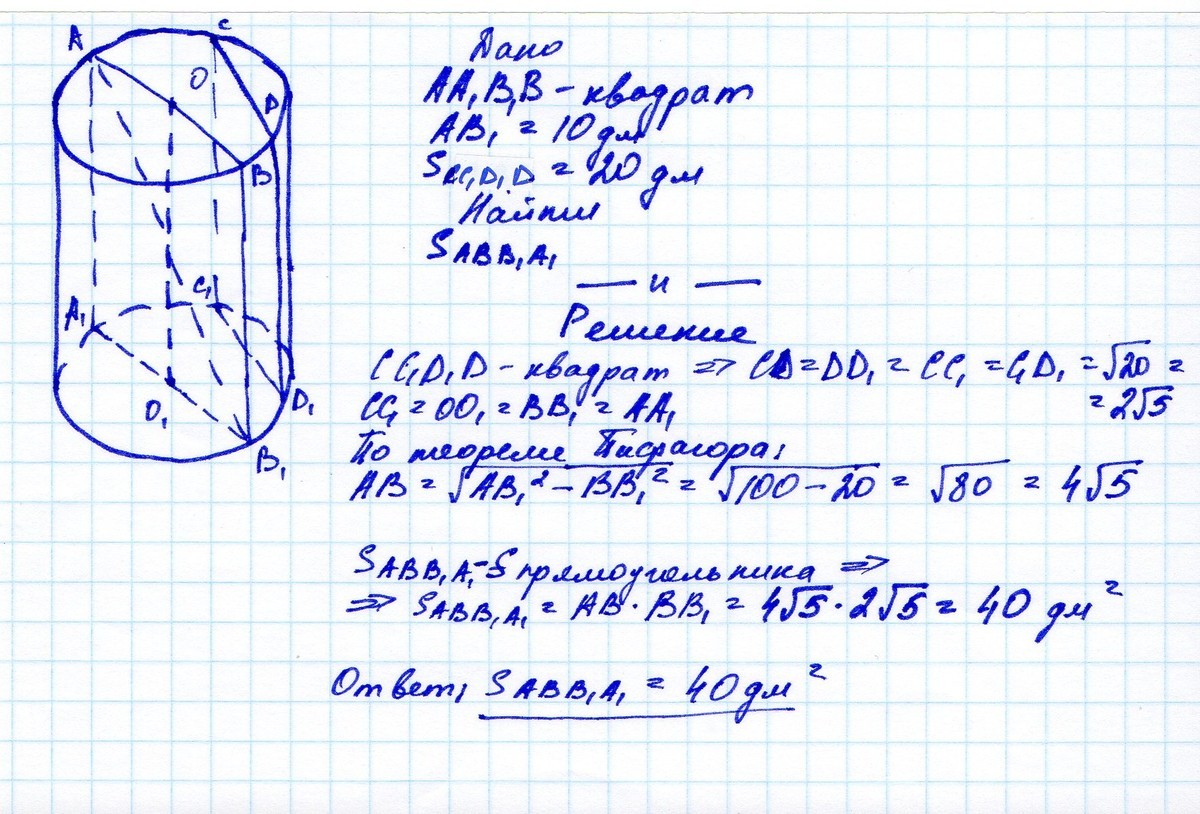 A
C
O
D
B
A₁
C₁
O₁
D₁
B₁
Дано
AA₁B₁B - квадрат
AB₁ = 10 дм
SCC₁D₁D = 20 дм
Найти
SABB₁A₁
— и —
Решение
CC₁D₁D - квадрат => CD = DD₁ = CC₁ = C₁D₁ = √20 =
= 2√5
CC₁ = OO₁ = BB₁ = AA₁
По теореме Пифагора:
AB = √AB₁² - BB₁² = √100 - 20 = √80 = 4√5
SABB₁A₁ - S прямоугольника =>
=> SABB₁A₁ = AB · BB₁ = 4√5 · 2√5 = 40 дм²
Ответ: SABB₁A₁ = 40 дм²